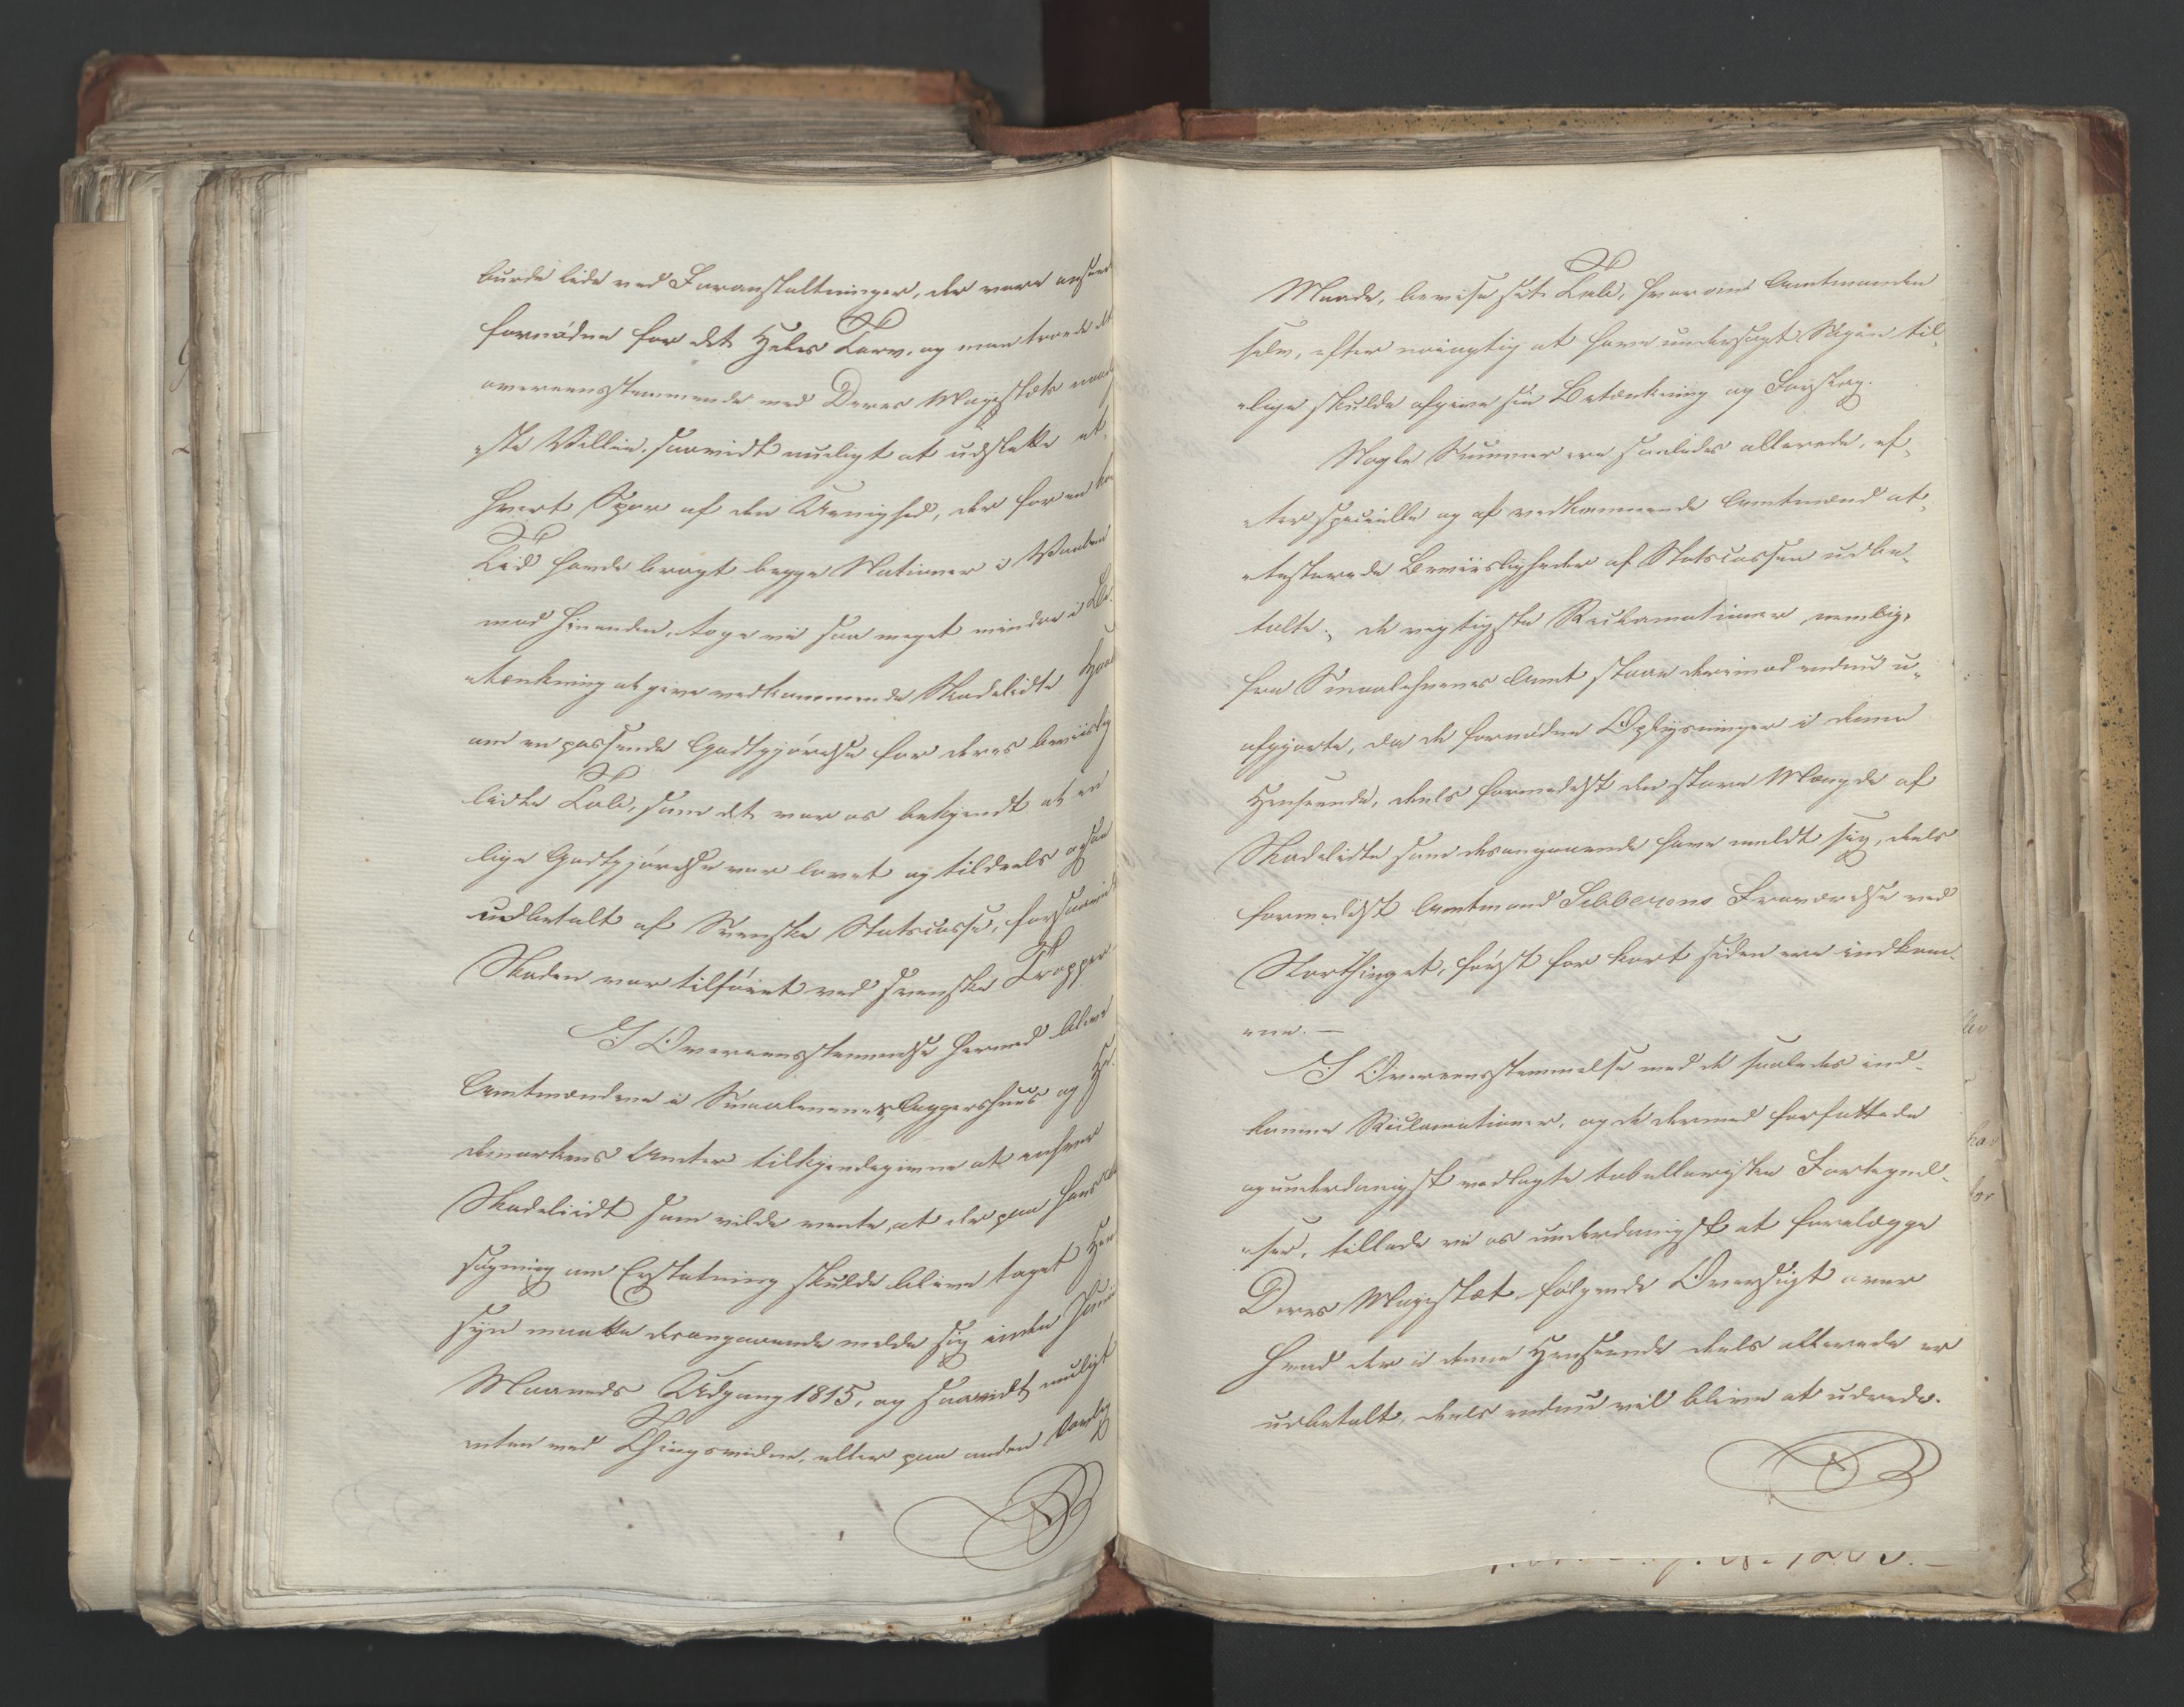 burde lide ved Foranstaltninger, der vare anseet
fornødne for det Heles Tarv, og man troede det
overeensstemmende med Deres Majestæts naad
„ste Villie, saavidt muligt at udslette et
hvert Spor af den Uenighed, der for en kor
Tid havde bragt begge Nationer i Vaaben
mod hinanden, toge vi saa meget mindre i Be„
„tænkning at give vedkommende Skadelidte Haab
om en passende Godtgjørelse for deres beviislig
lidte Tab, som det var os bekjendt at en
lige Godtgjørelse var lovet og tildeels ogsaa
udbetalt af Svenske Statscasse, forsaavidt
Skaden var tilføiet ved svenske Tropper.
I Overeensstemmelse hermed bleve
Amtmændene i Smaalenenes, Aggershuus og He„
demarkens Amter tilkjendegivne at enhver
Skadeliidt som vilde vente, at der paa hans
søgning om Erstatning skulde blive taget Hen
syn maatte desangaaende melde sig inden Junii
Maaneds Udgang 1815, og saavidt muligt
enten ved Thingsvidne, eller paa anden
Maade, bevise sit Tab, hvorom Amtmanden
selv, efter nøiagtig at have undersøgt Sagen til„
„lige skulde afgive sin Betænkning og Forslag.
Nogle Summer ere saaledes allerede, ef„
„ter specielle og af vedkommende Amtmænd at„
„testerede Beviisligheder af Statscassen udbe„
talte; de vigtigste Reclamationer nemlig,
fra Smaalehnenes Amt staae derimod endnu u„
afgjorte, da de fornødne Oplysninger i denne
Henseende, deels formedelst den store Mængde af
Skadelidte som desangaaende have meldt sig, deels
formedelst Amtmand Sibberns Fraværelse ved
Storthinget, først for kort siden ere indkom„
„ne. —
I Overeensstemmelse med de saaledes ind„
komne Reclamationer, og de dermed forfattede
og underdanigst vedlagte tabellariske Fortegnel„
„ser, tillade vi os underdanigst at forelægge
Deres Majestæt følgende Oversigt over
hvad der i denne Henseende deels allerede er
udbetalt, deels endnu vil blive at udrede.